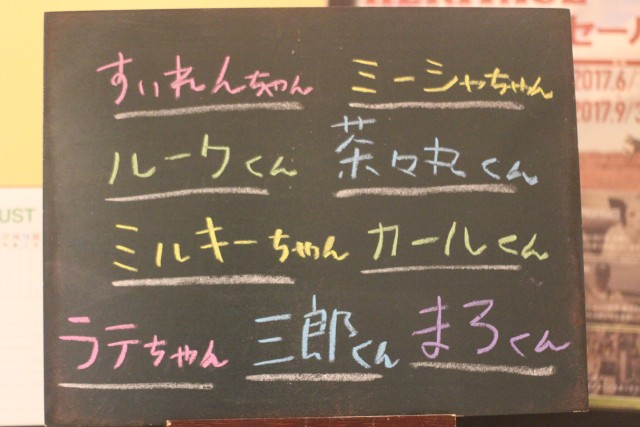 すいれんちゃん ミーシャッちゃん
ルークくん 茶々丸くん
ミルキーちゃん カールくん
ラテちゃん 三郎くん まろくん
セール
2017.6/
2017.9/
UST